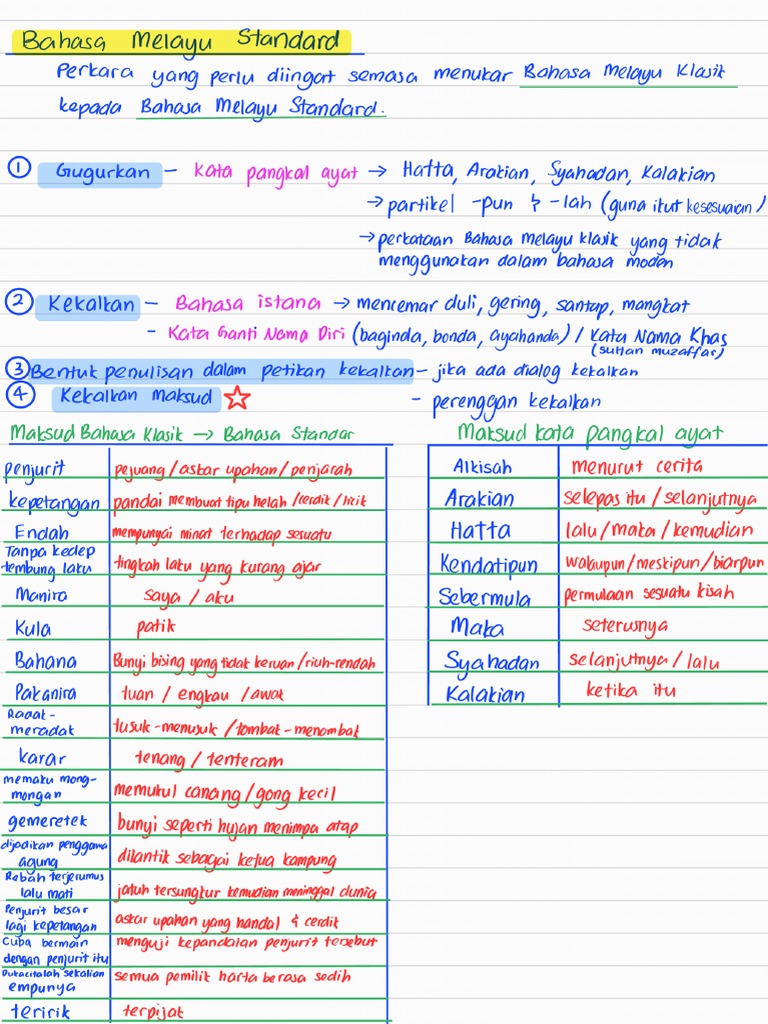 Bahasa Melayu Standard
Perkara yang perlu diingat semasa menukar Bahasa Melayu Klasik
kepada Bahasa Melayu Standard.
① Gugurkan – Kata pangkal ayat → Hatta, Arakian, Syahadan, Kalakian
→ partikel -pun & -lah (guna ikut kesesuaian)
→ perkataan Bahasa Melayu klasik yang tidak
menggunakan dalam bahasa moden
② Kekalkan – Bahasa istana → mencemar duli, gering, santap, mangkat
- Kata Ganti Nama Diri (baginda, bonda, ayahanda) / Kata Nama Khas
(sultan muzaffar)
③ Bentuk penulisan dalam petikan kekalkan – jika ada dialog kekalkan
④ Kekalkan maksud ☆ - perenggan kekalkan
Maksud Bahasa Klasik → Bahasa Standar
penjurit pejuang / askar upahan / penjarah
kepetangan pandai membuat tipu helah / cerdik / licik
Endah mempunyai minat terhadap sesuatu
Tanpa kedep
tembung laku tingkah laku yang kurang ajar
Manira saya / aku
Kula patik
Bahana Bunyi bising yang tidak keruan / riuh-rendah
Pakanira tuan / engkau / awak
Radak-
meradak tusuk-menusuk / tombak-menombak
karar tenang / tenteram
memaku mong-
mongan memukul canang / gong kecil
gemeretek bunyi seperti hujan menimpa atap
dijadikan penggawa
agung dilantik sebagai ketua kampung
Rebah terjerumus
lalu mati jatuh tersungkur kemudian meninggal dunia
Penjurit besar
lagi kepetangan askar upahan yang handal & cerdik
Cuba bermain
dengan penjurit itu menguji kepandaian penjurit tersebut
Dukacitalah sekalian
empunya semua pemilik harta berasa sedih
teririk terpijak
Maksud kata pangkal ayat
Alkisah menurut cerita
Arakian selepas itu / selanjutnya
Hatta lalu / maka / kemudian
Kendatipun walaupun / meskipun / biarpun
Sebermula permulaan sesuatu kisah
Maka seterusnya
Syahadan selanjutnya / lalu
Kalakian ketika itu